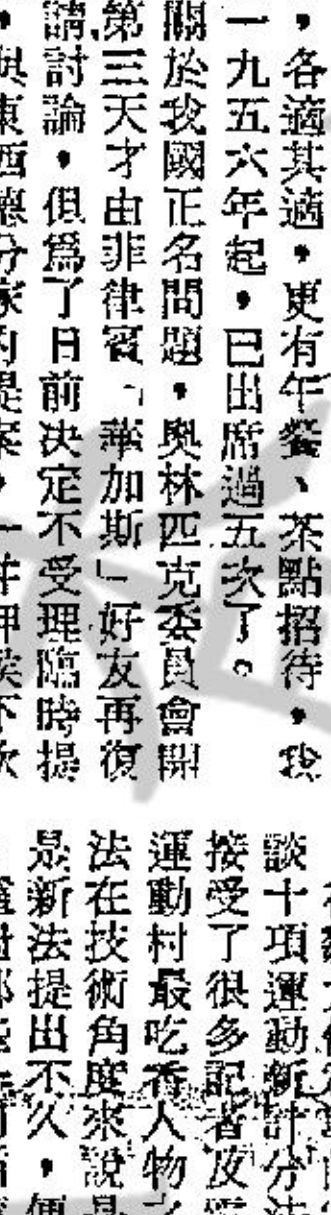 ，各適其適，更有午餐、茶點招待，我
一九五六年起，已出席過五次了。
關於我國正名問題，奧林匹克委員會開
第三天才由非律賓「華加斯」好友再復
請討論，但爲了日前決定不受理臨時提
，與東西德分家的提案，一并押候下次
談十項運動新計分法
接受了很多記者及
運動村最吃香人物之
法在技術角度來說是
是新法提出不久，便